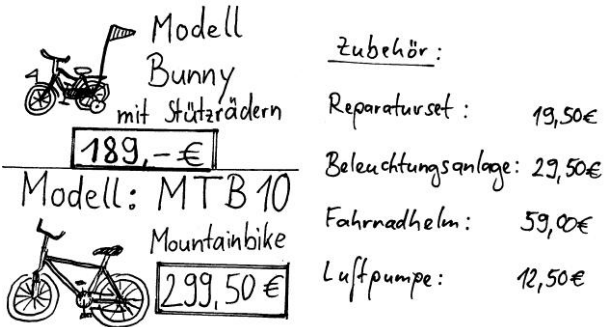 Modell
Bunny
mit Stützrädern
189,-€
Modell: MTB 10
Mountainbike
299,50€
Zubehör:
Reparaturset: 19,50€
Beleuchtungsanlage: 29,50€
Fahrradhelm: 59,00€
Luftpumpe: 12,50€